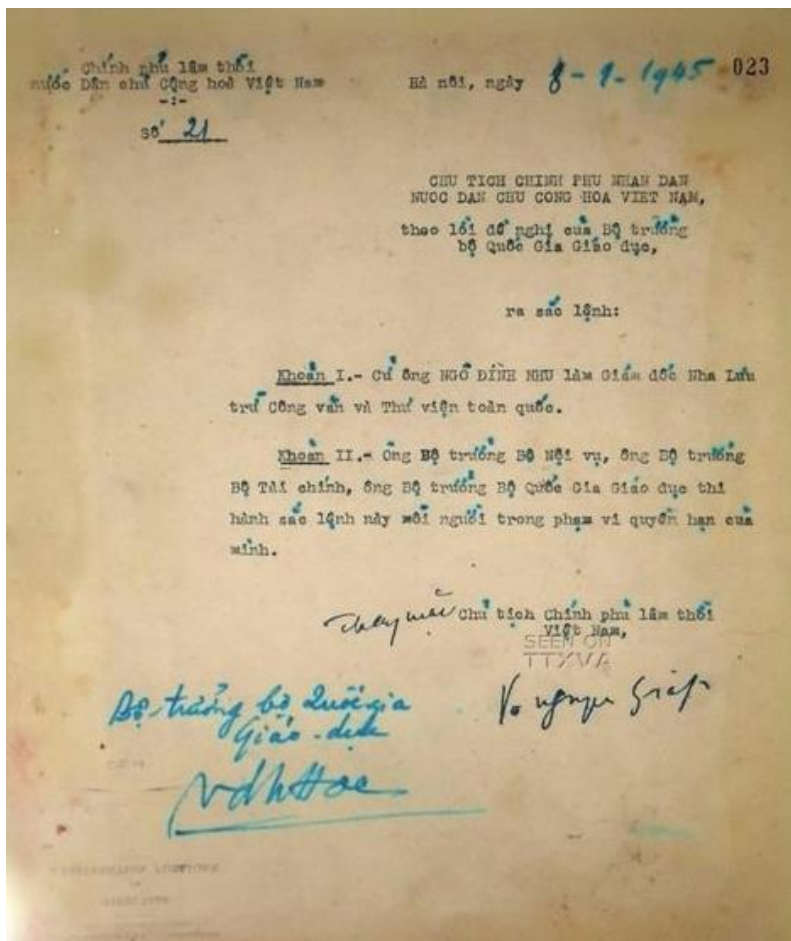 Chính phủ lâm thời
nước Dân chủ Cộng hoà Việt Nam
-:-
Số 21
Hà nội, ngày 8-9-1945
023
CHU TICH CHINH PHU NHAN DAN
NUOC DAN CHU CONG HOA VIET NAM,
theo lời đề nghị của Bộ trưởng
bộ Quốc Gia Giáo dục,
ra sắc lệnh:
Khoản I.- Cử ông NGÔ ĐÌNH NHU làm Giám đốc Nha Lưu
trữ Công văn và Thư viện toàn quốc.
Khoản II.- Ông Bộ trưởng Bộ Nội vụ, ông Bộ trưởng
Bộ Tài chính, ông Bộ trưởng Bộ Quốc Gia Giáo dục thi
hành sắc lệnh này mỗi người trong phạm vi quyền hạn của
mình.
Thay mặt Chủ tịch Chính phủ lâm thời
Việt Nam,
SEEN ON
TTXVA
Bộ trưởng bộ Quốc gia
Giáo-dục
Võ nguyên Giáp
VĐHHoe